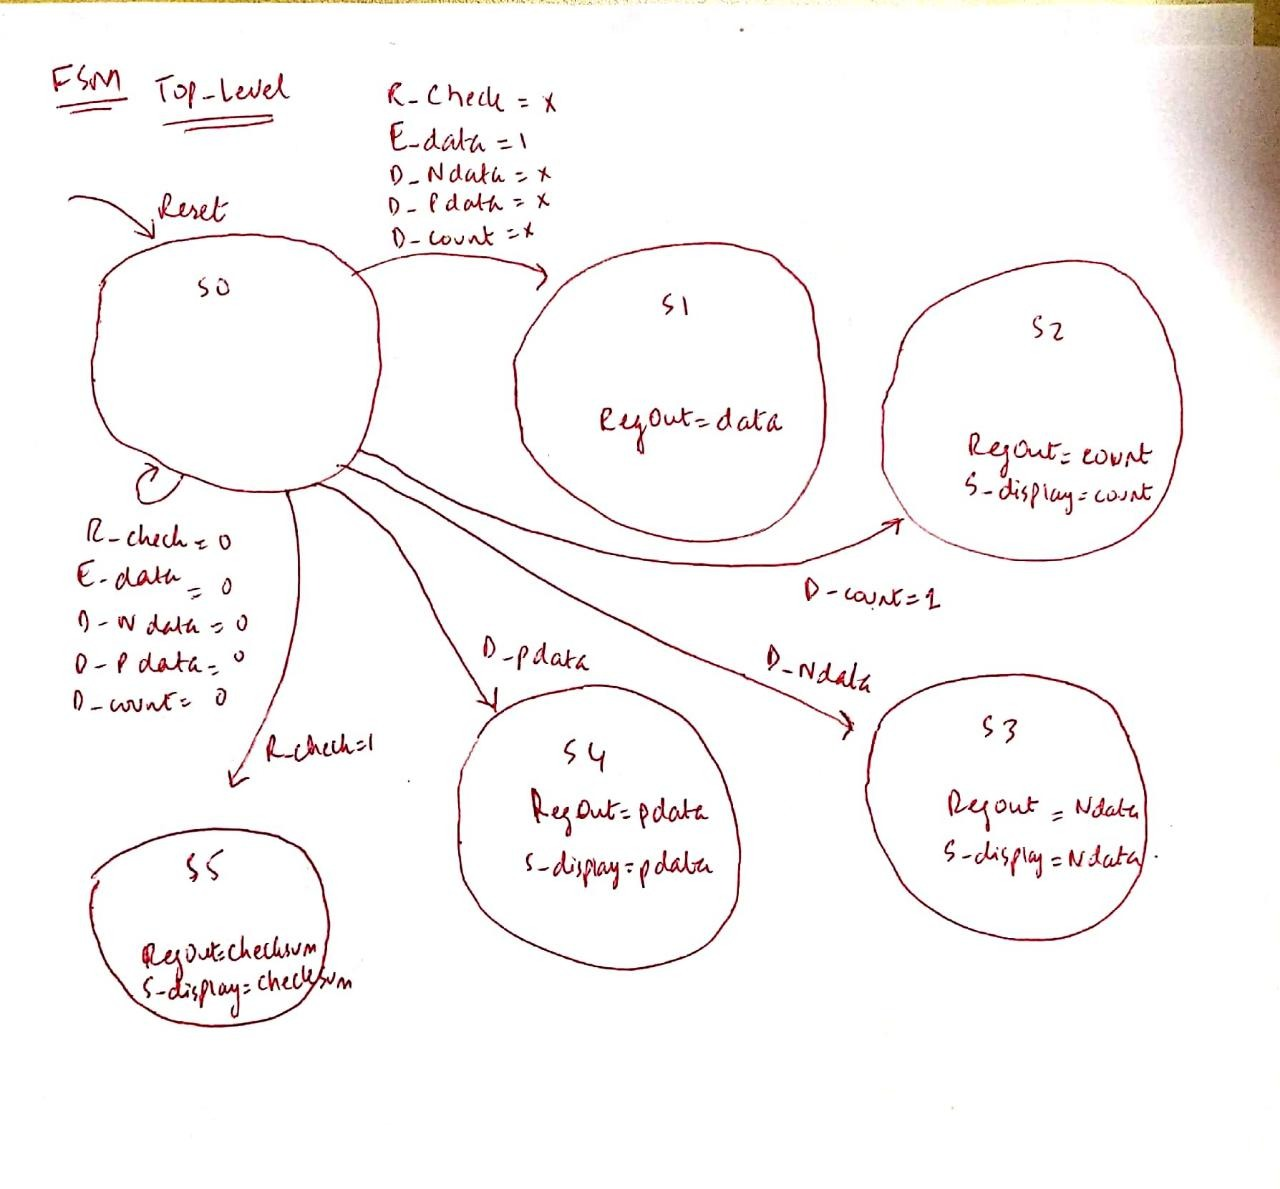 FSM Top-Level
R_Check = x
E-data = 1
D_Ndata = x
D_Pdata = x
D-count = x
Reset
S0
S1
RegOut = data
S2
RegOut = count
S-display = count
R_check = 0
E-data = 0
D-N data = 0
D-P data = 0
D-count = 0
D-count = 1
D_pdata
D_Ndata
R_check=1
S4
RegOut = pdata
S-display = pdata
S3
Regout = Ndata
S-display = Ndata
S5
RegOut=checksum
S-display=checksum